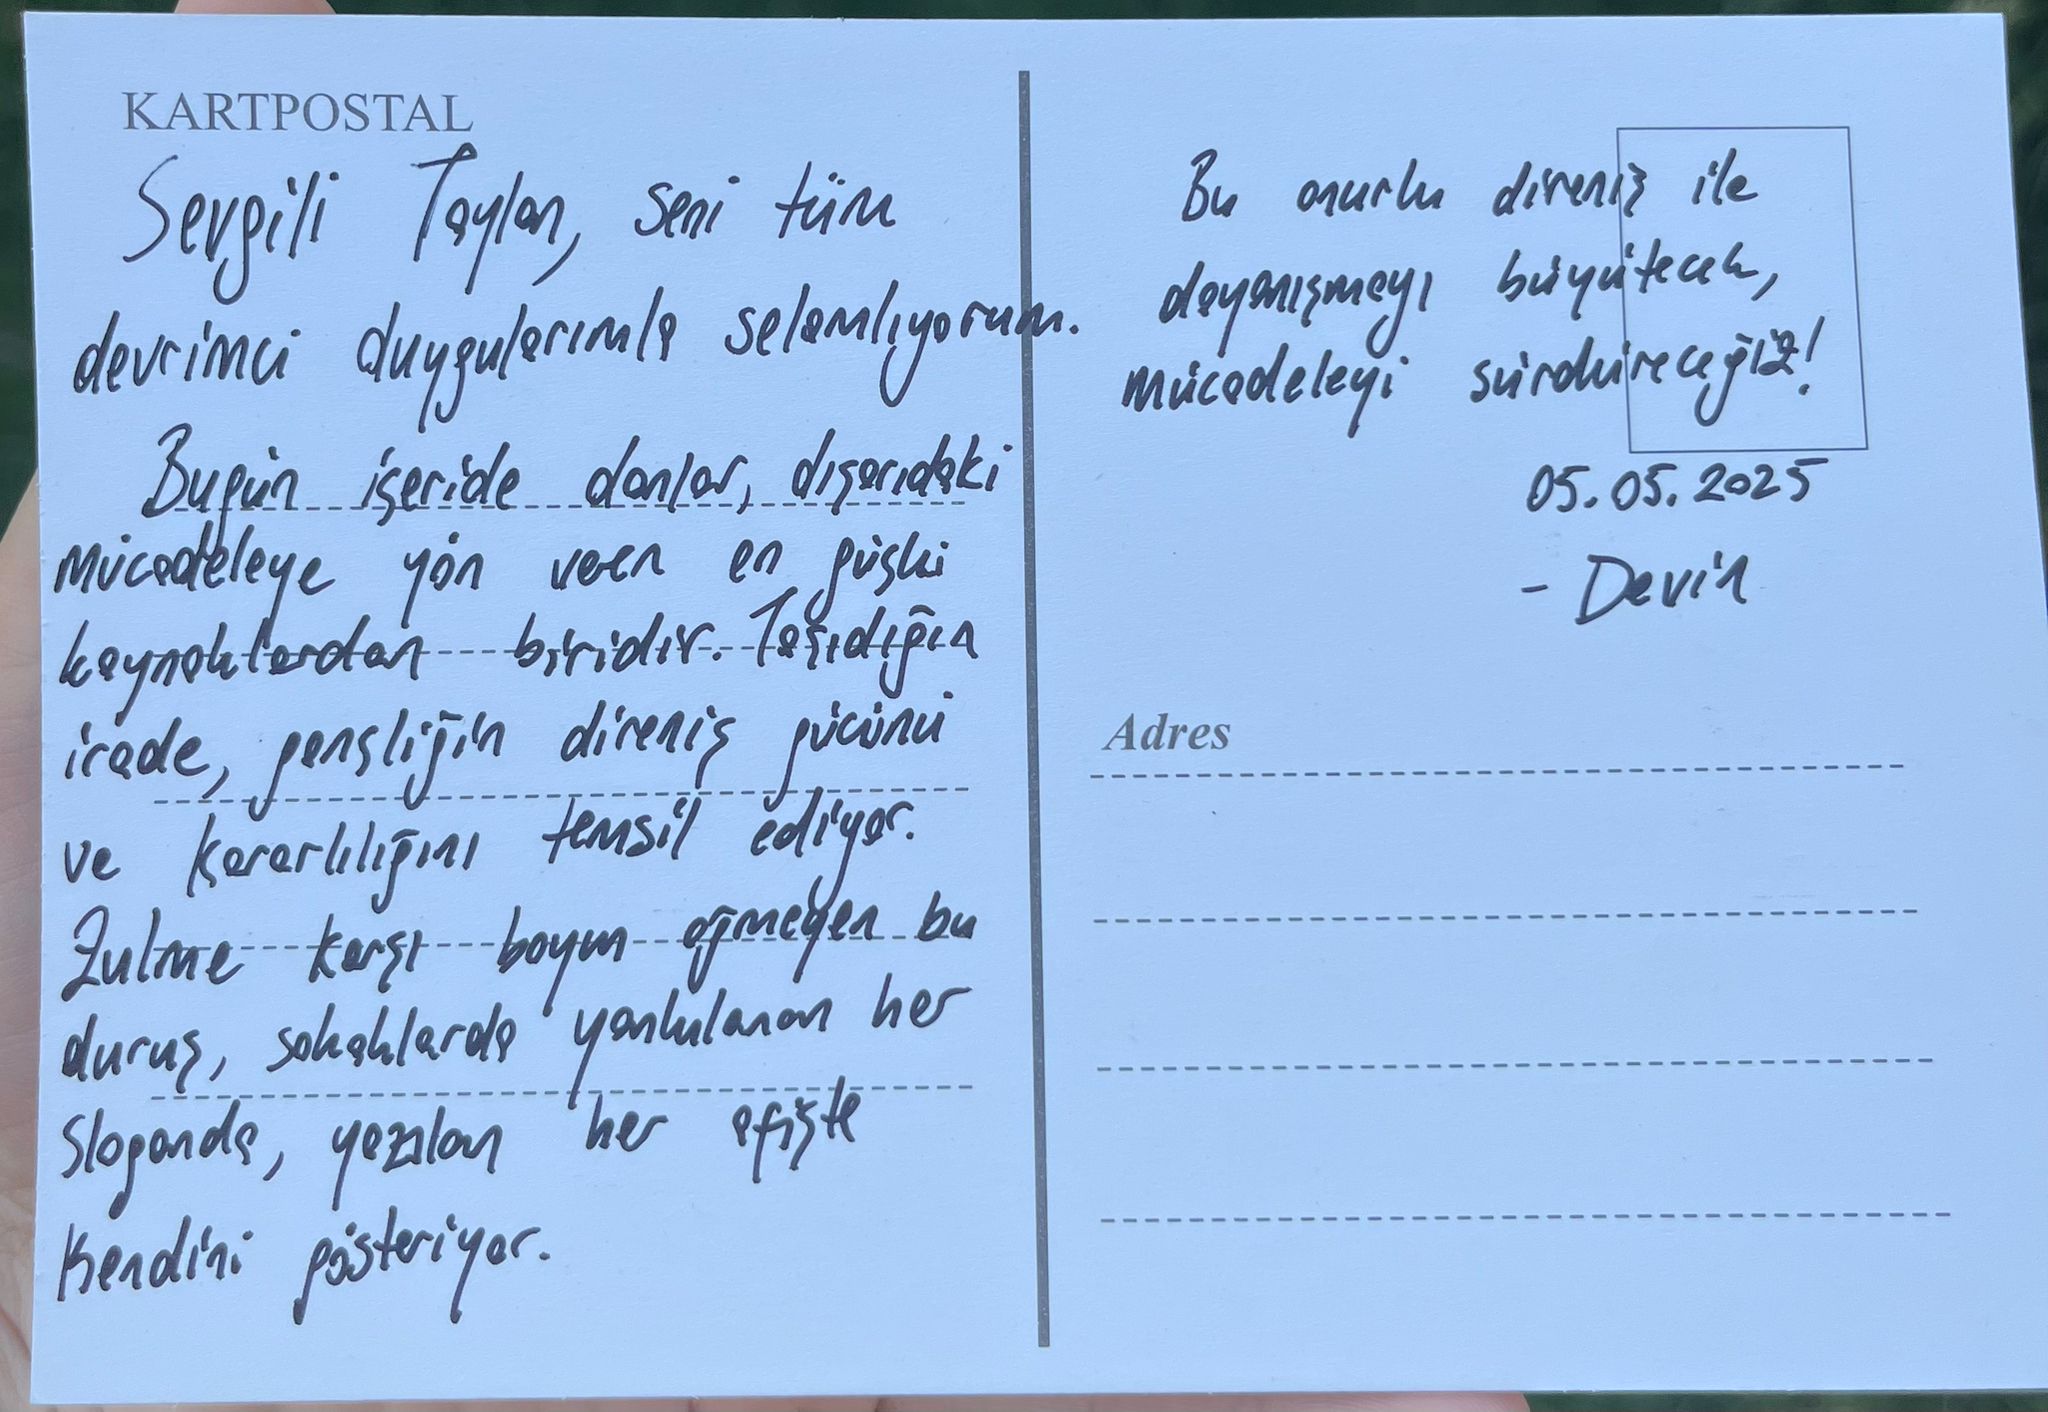 KARTPOSTAL
Sevgili Taylan, seni tüm
devrimci duygularımla selamlıyorum.
Bugün içeride olanlar, dışarıdaki
mücadeleye yön veren en güçlü
kaynaklardan biridir. Taşıdığın
irade, gençliğin direniş gücünü
ve kararlılığını temsil ediyor.
Zulme karşı boyun eğmeyen bu
duruş, sokaklarda yankılanan her
sloganda, yazılan her afişte
kendini gösteriyor.
Bu onurlu direniş ile
dayanışmayı büyütecek,
mücadeleyi sürdüreceğiz!
05.05.2025
- Devin
Adres